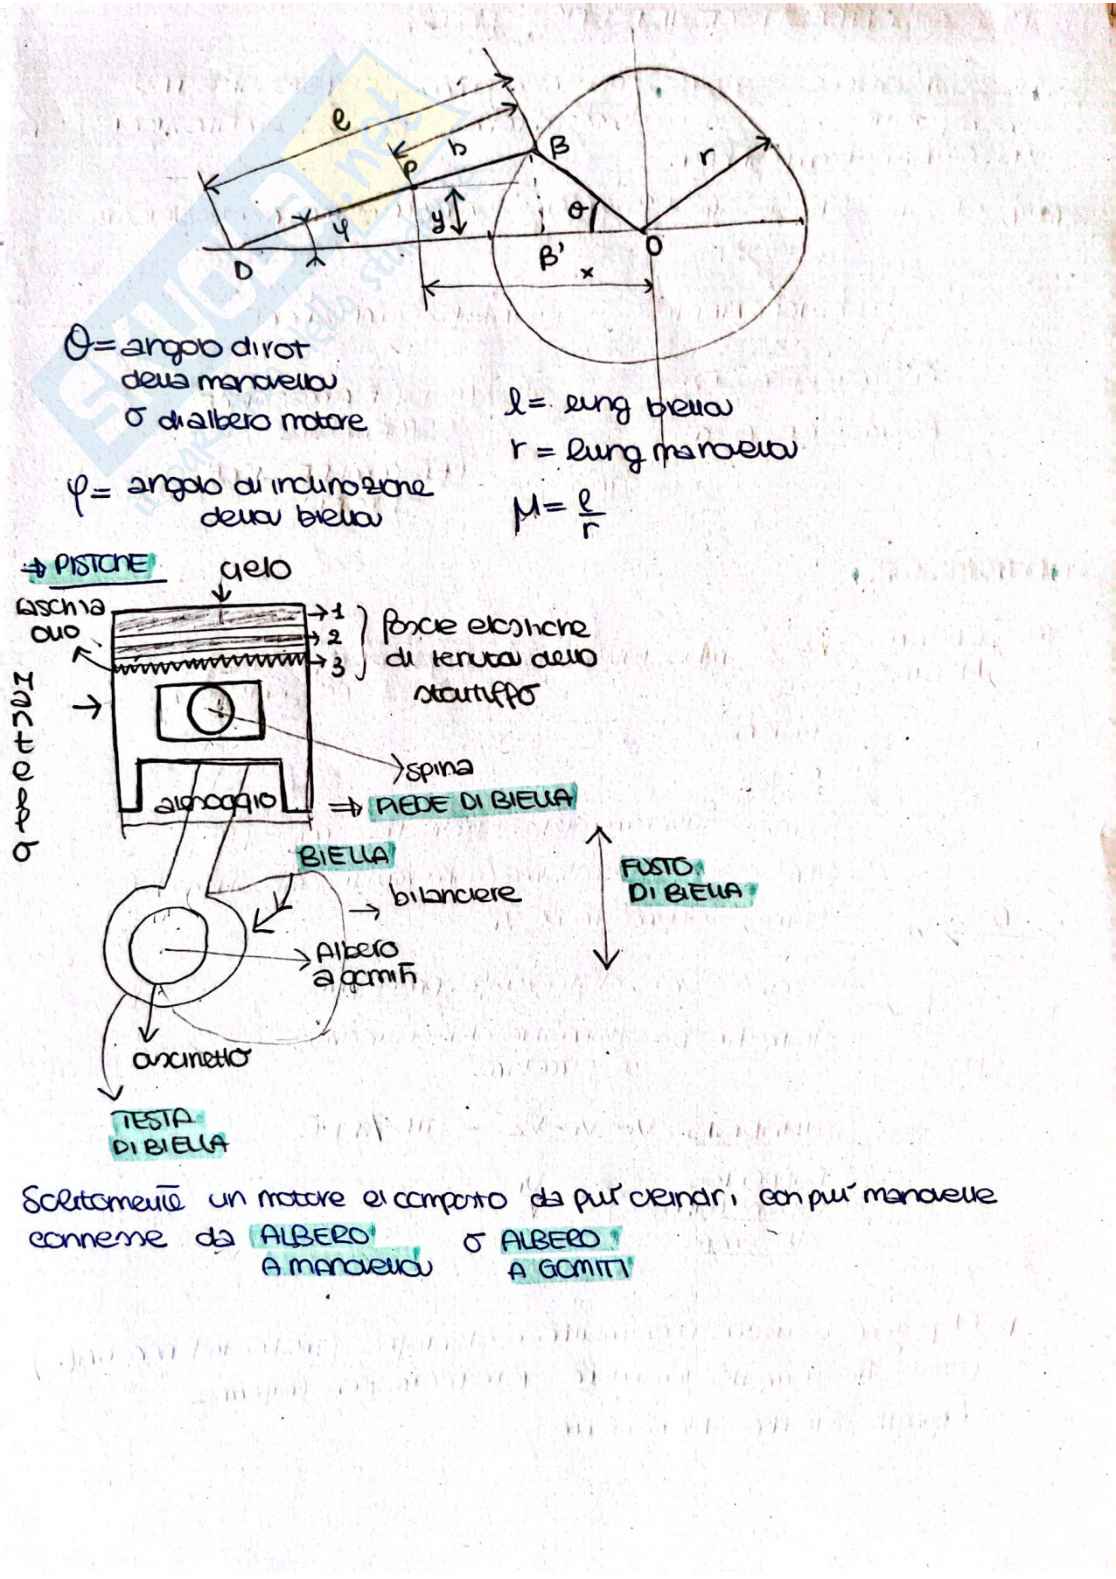 l
b
P
B
r
y
φ
θ
D
B'
x
O
θ= angolo di rot
della manovella
o di albero motore
l= lung biella
r = lung manovella
φ= angolo di inclinazione
della biella
μ= l/r
⇒ PISTONE
cielo
raschia
olio
1
2
3
fasce elastiche
di tenuta dello
stantuffo
mantello
spina
alloggio
⇒ PIEDE DI BIELLA
BIELLA
FUSTO
DI BIELLA
bilanciere
Albero
a gomiti
cuscinetto
TESTA
DI BIELLA
Solitamente un motore è composto da più cilindri, con più manovelle
connesse da ALBERO o ALBERO
A MANOVELLA A GOMITI